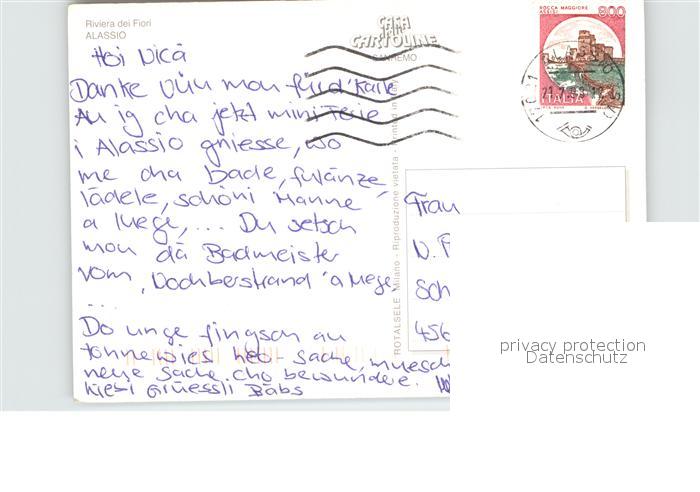 Riviera dei Fiori
ALASSIO
CASA
delle
CARTOLINE
SANREMO
ROCCA MAGGIORE
ASSISI
800
ITALIA
Hoi Nicä
Danke vüu mou für d'Karte
Au ig cha jetzt mini Ferie
i Alassio gniesse, wo
me cha bade, fulänze,
lädele, schöni Manne
a luege, ... Du setsch
mou dä Badmeister
vom, Nochberstrand 'a luege.
...
Do unge fingsch au
tonnewies neo- Sache, muesch
neue Sache cho bewundere.
Liebi Grüessli Babs
ROTALSELE Milano - Riproduzione vietata - Printed in Italy
Frau
N. F
Sch
456
privacy protection
Datenschutz